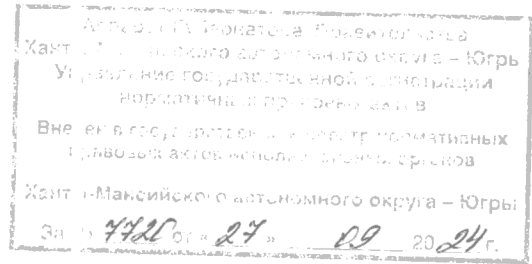 Аппарат Губернатора, Правительства
Ханты-Мансийского автономного округа – Югры
Управление государственной регистрации
нормативных правовых актов
Внесен в государственный реестр нормативных
правовых актов исполнительных органов
Ханты-Мансийского автономного округа – Югры
За № от « 27 » 09 20 24 г.